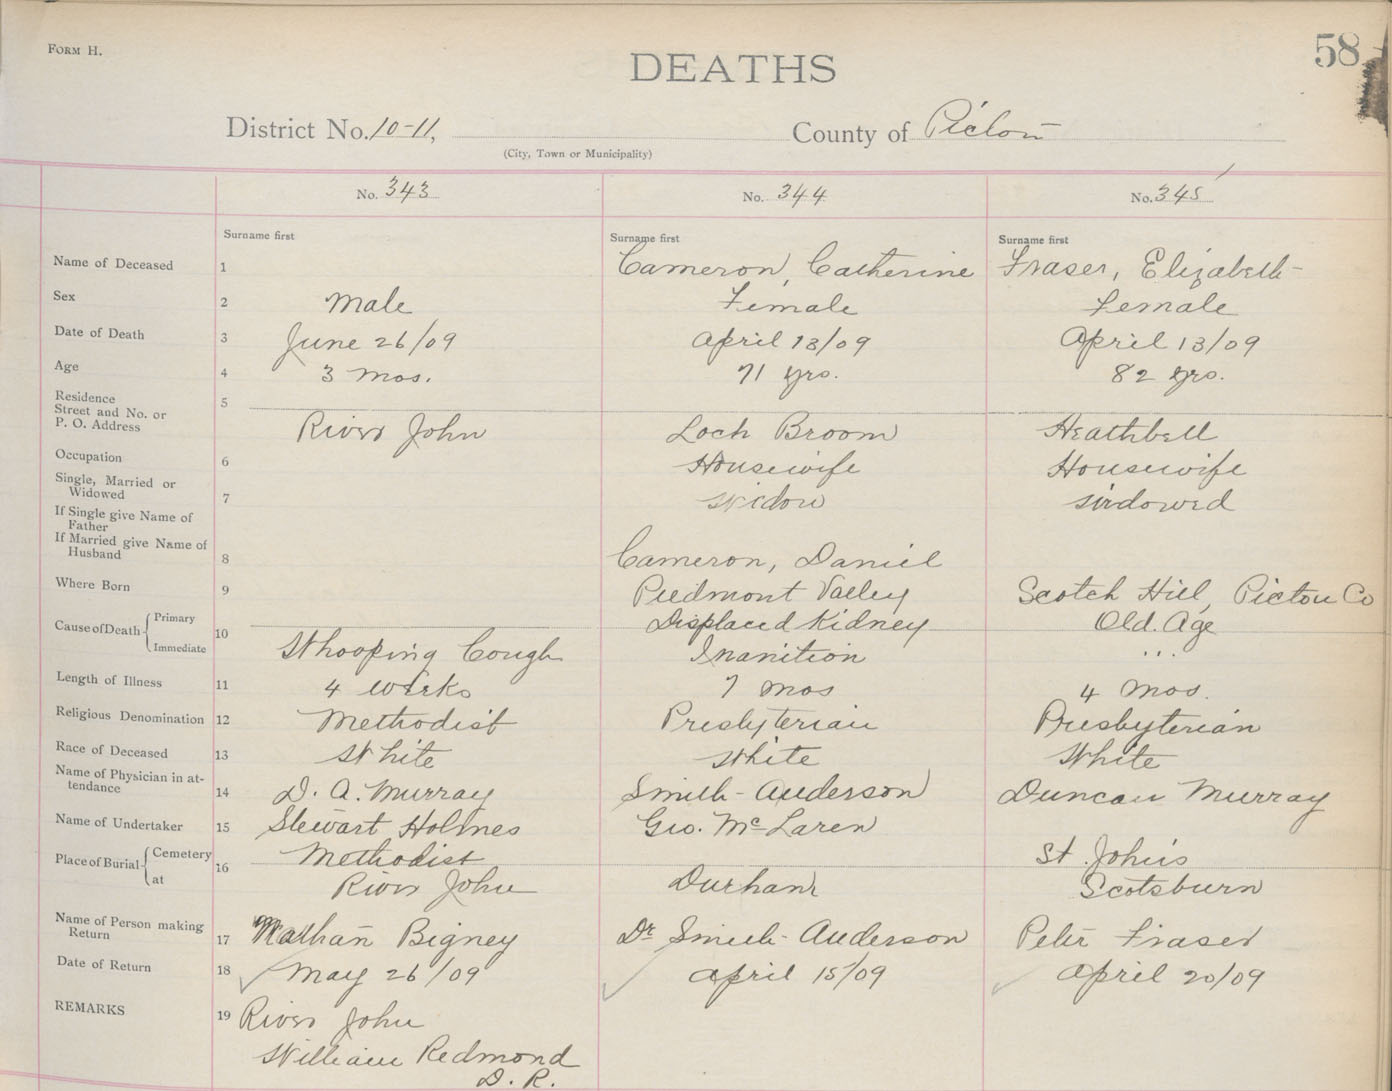 FORM H.
58
DEATHS
District No. 10-11, County of Pictou
(City, Town or Municipality)
No. 343 No. 344 No. 345
Surname first Surname first Surname first
Name of Deceased 1 Cameron, Catherine Fraser, Elizabeth
Sex 2 Male Female Female
Date of Death 3 June 26/09 April 13/09 April 13/09
Age 4 3 mos. 71 yrs. 82 yrs.
Residence
Street and No. or 5
P. O. Address River John Loch Broom Heathbell
Occupation 6 Housewife Housewife
Single, Married or
Widowed 7 Widow Widowed
If Single give Name of
Father
If Married give Name of
Husband 8 Cameron, Daniel
Where Born 9 Piedmont Valley Scotch Hill, Pictou Co
Cause of Death Primary Displaced Kidney Old Age
10
Immediate Whooping Cough Inanition " "
Length of Illness 11 4 weeks 7 mos 4 mos.
Religious Denomination 12 Methodist Presbyterian Presbyterian
Race of Deceased 13 White White White
Name of Physician in at-
tendance 14 D. A. Murray Smith-Anderson Duncan Murray
Name of Undertaker 15 Stewart Holmes Geo. McLaren
Place of Burial Cemetery 16 Methodist St. John's
at River John Durham Scotsburn
Name of Person making
Return 17 Nathan Bigney Dr Smith-Anderson Peter Fraser
Date of Return 18 May 26/09 April 15/09 April 20/09
REMARKS 19 River John
William Redmond
D. R.